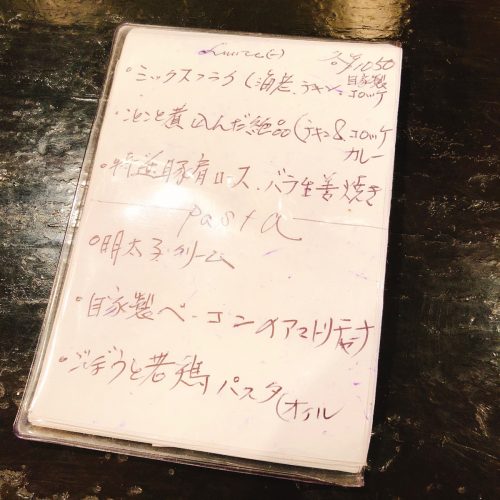 各¥1050
・ミックスフライ(海老、チキン、自家製コロッケ
・ことこと煮込んだ絶品(チキン&コロッケ
カレー
・特選豚肩ロース、バラ生姜焼き
pasta
・明太子クリーム
・自家製ベーコンのアマトリチャーナ
・ごぼうと若鶏パスタ(オイル